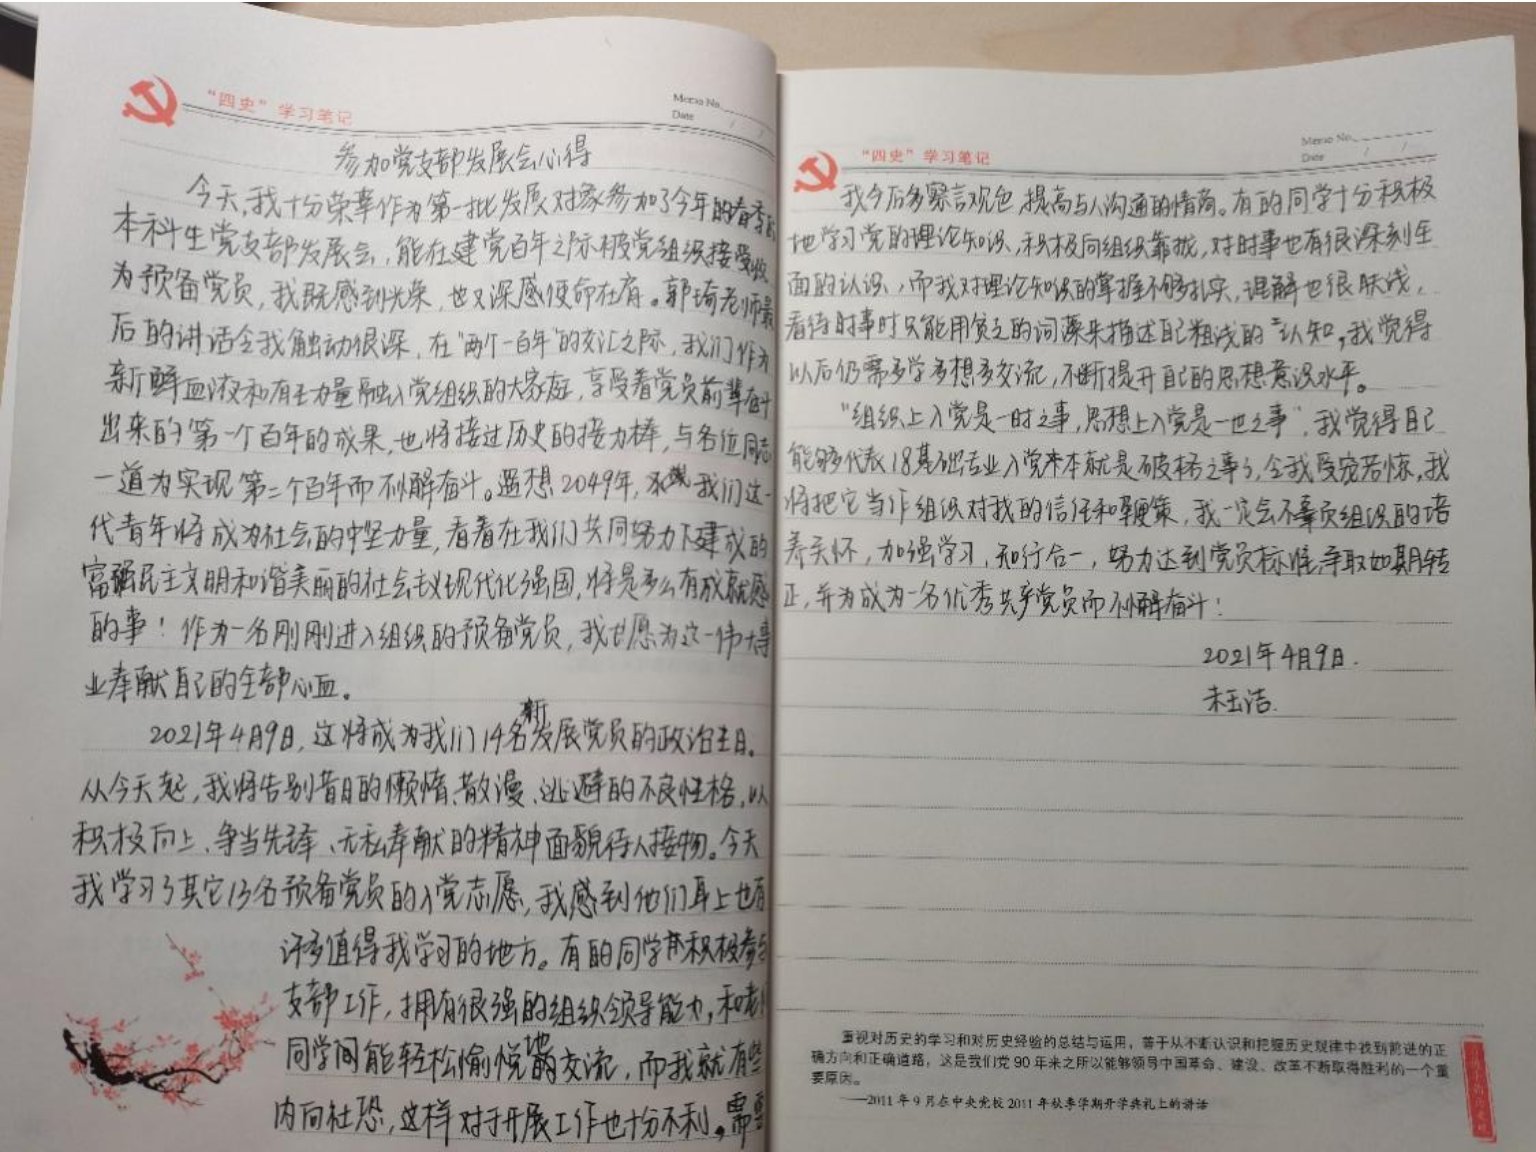 "四史"学习笔记
Memo No.
Date / /
参加党支部发展会心得
今天,我十分荣幸作为第一批发展对象参加了今年的春季的
本科生党支部发展会,能在建党百年之际被党组织接受收
为预备党员,我既感到光荣,也又深感使命在肩。郭琦老师最
后的讲话令我触动很深,在"两个一百年"的交汇之际,我们作为
新鲜血液和有生力量融入党组织的大家庭,享受着党员前辈奋斗
出来的第一个百年的成果,也将接过历史的接力棒,与各位同志
一道为实现第二个百年而不懈奋斗。遥想2049年,我们这一
代青年将成为社会的中坚力量,看着在我们共同努力下建成的
富强民主文明和谐美丽的社会主义现代化强国,将是多么有成就感
的事!作为一名刚刚进入组织的预备党员,我也愿为这一伟大事
业奉献自己的全部心血。
2021年4月9日,这将成为我们14名新发展党员的政治生日。
从今天起,我将告别昔日的懒惰、散漫、逃避的不良性格,以
积极向上、争当先锋、无私奉献的精神面貌待人接物。今天
我学习了其它13名预备党员的入党志愿,我感到他们身上也有
许多值得我学习的地方。有的同学积极参与
支部工作,拥有很强的组织领导能力,和老师
同学间能轻松愉悦地交流,而我就有些
内向社恐,这样对于开展工作也十分不利。需要
"四史"学习笔记
Memo No.
Date / /
我今后多察言观色,提高与人沟通的情商。有的同学十分积极
地学习党的理论知识,积极向组织靠拢,对时事也有很深刻全
面的认识,而我对理论知识的掌握不够扎实,理解也很肤浅,
看待时事时只能用贫乏的词藻来描述自己粗浅的认知,我觉得
以后仍需多学多想多交流,不断提升自己的思想意识水平。
"组织上入党是一时之事,思想上入党是一世之事",我觉得自己
能够代表18基础专业入党本就是破格之事了,令我受宠若惊,我
将把它当作组织对我的信任和鞭策,我一定会不辜负组织的培
养关怀,加强学习,知行合一,努力达到党员标准,争取如期转
正,并为成为一名优秀共产党员而不懈奋斗!
2021年4月9日.
朱玉洁.
重视对历史的学习和对历史经验的总结与运用,善于从不断认识和把握历史规律中找到前进的正
确方向和正确道路,这是我们党90年来之所以能够领导中国革命、建设、改革不断取得胜利的一个重
要原因。
——2011年9月在中央党校2011年秋季学期开学典礼上的讲话